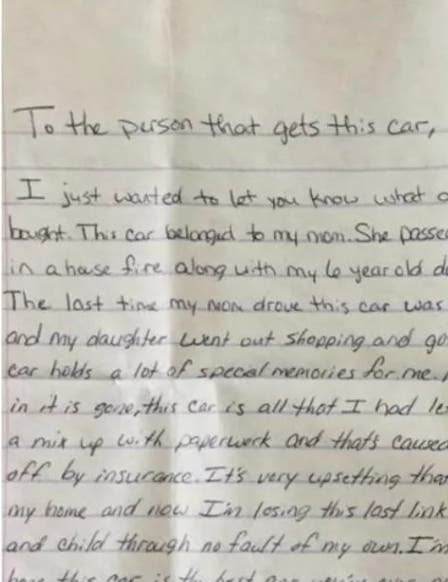 To the person that gets this car,
I just wanted to let you know what
bought. This car belonged to my mom. She passe
in a house fire along with my 6 year old d
The last time my mom drove this car was
and my daughter went out shopping and go
car holds a lot of special memories for me.
in it is gone, this car is all that I had le
a mix up with paperwork and that's caused
off by insurance. It's very upsetting that
my home and now I'm losing this last link
and child through no fault of my own. I'm
this car is the best